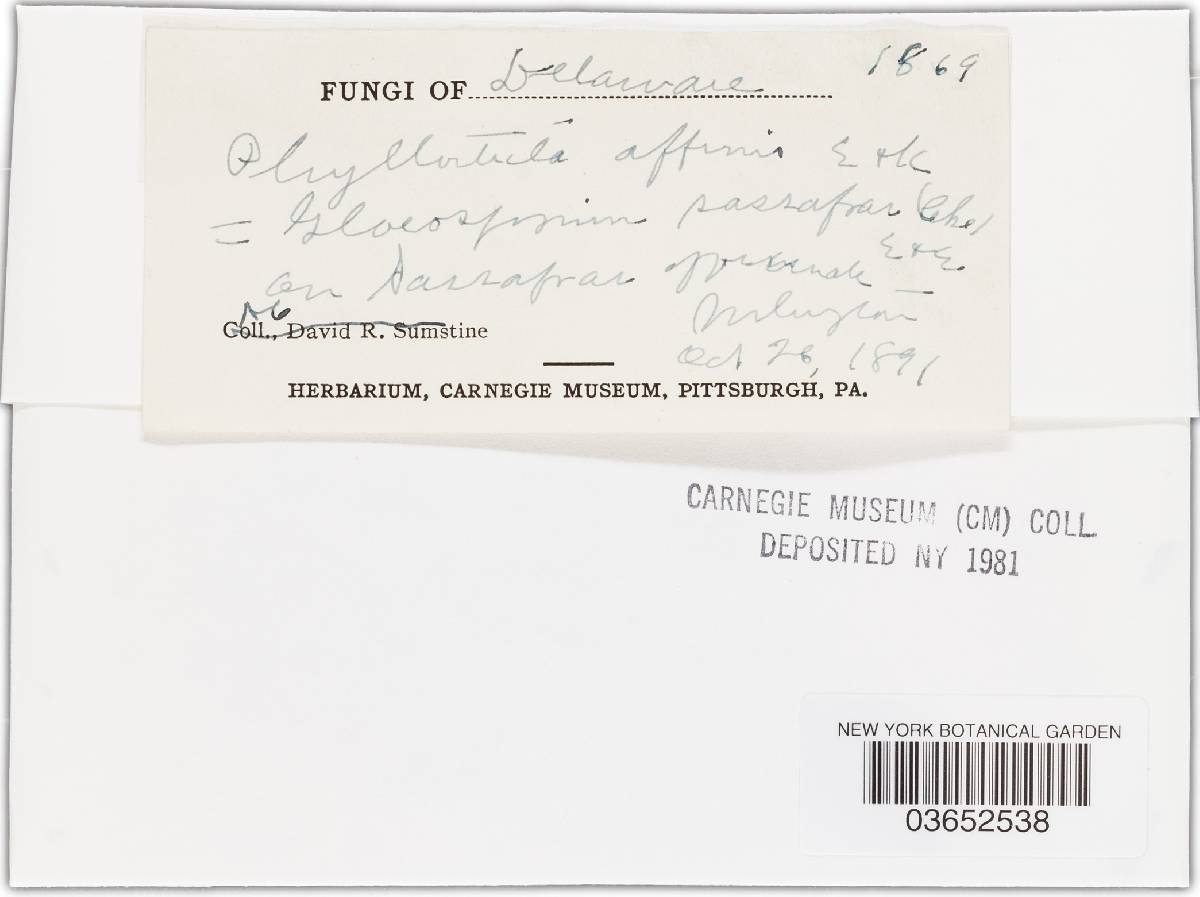 1869
FUNGI OF Delaware
Phyllosticta affinis E + K
= Gloeosporium sassafras (Cke)
E + E
on Sassafras officinale
Wilmington
Coll., David R. Sumstine
Oct 26, 1891
HERBARIUM, CARNEGIE MUSEUM, PITTSBURGH, PA.
CARNEGIE MUSEUM (CM) COLL.
DEPOSITED NY 1981
NEW YORK BOTANICAL GARDEN
03652538